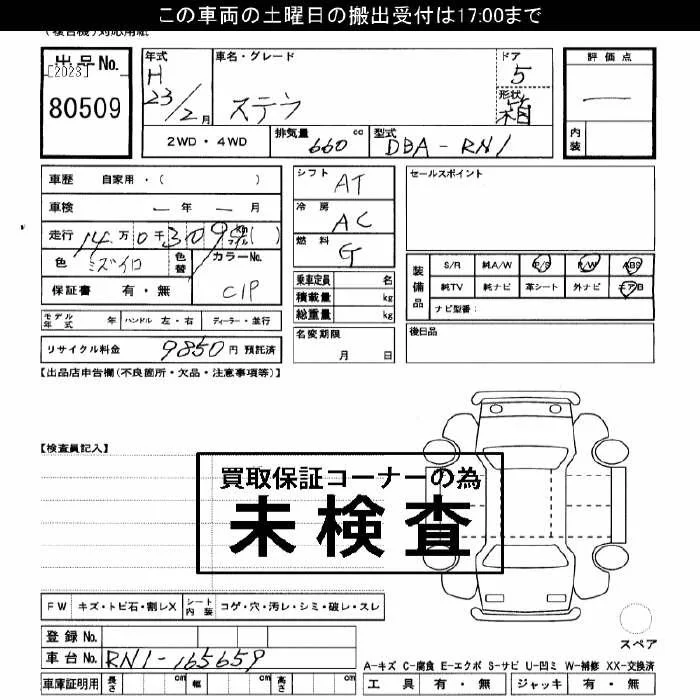 この車両の土曜日の搬出受付は17:00まで
(複合機)対応用紙
出品No.
[2023]
80509
年式
H
23/2月
車名・グレード
ステラ
ドア
5
形状
箱
評価点
—
内装
2WD・4WD
排気量 660 cc
型式 DBA-RN1
車歴 自家用・( )
車検 ー年ー月
走行 14万0千309 km マイル( )
色 ミズイロ 色替 カラーNo.
C1P
保証書 有・無
モデル年式 年 ハンドル 左・右 ディーラー・並行
リサイクル料金 9850円 預託済
シフト AT
冷房 AC
燃料 G
乗車定員 名
積載量 kg
総重量 kg
名変期限
月 日
セールスポイント
装備品
S/R 純A/W P/S P/W ABS
純TV 純ナビ 革シート 外ナビ エアB
ナビ型番:
後日品
【出品店申告欄(不良箇所・欠品・注意事項等)】
【検査員記入】
買取保証コーナーの為
未検査
FW キズ・トビ石・割レX シート内装 コゲ・穴・汚レ・シミ・破レ・スレ
登録No.
車台No. RN1-165659
車庫証明用 長さ cm 幅 cm 高さ cm
スペア
A-キズ C-腐食 E-エクボ S-サビ U-凹ミ W-補修 XX-交換済
工具 有・無 ジャッキ 有・無